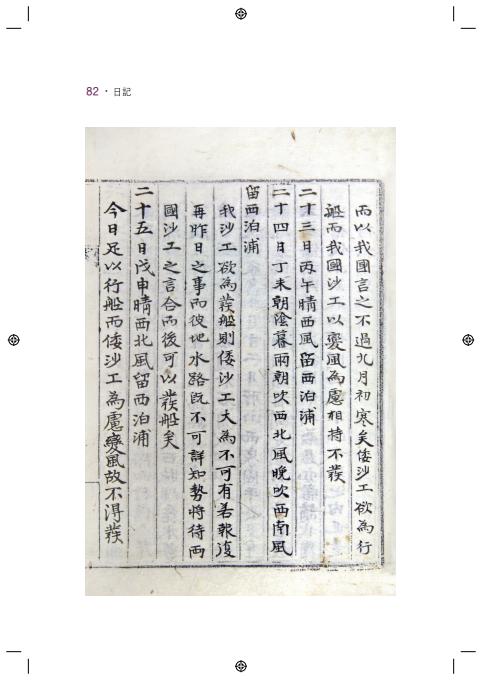 82 · 日記
而以我國言之不過九月初寒矣倭沙工欲為行
船而我國沙工以變風為慮相持不發
二十三日丙午晴西風留西泊浦
二十四日丁未朝陰暮雨朝吹西北風晚吹西南風
留西泊浦
我沙工欲為發船則倭沙工大為不可有若報復
再昨日之事而彼地水路旣不可詳知勢將待兩
國沙工之言合而後可以發船矣
二十五日戊申晴西北風留西泊浦
今日足以行船而倭沙工為慮變風故不得發